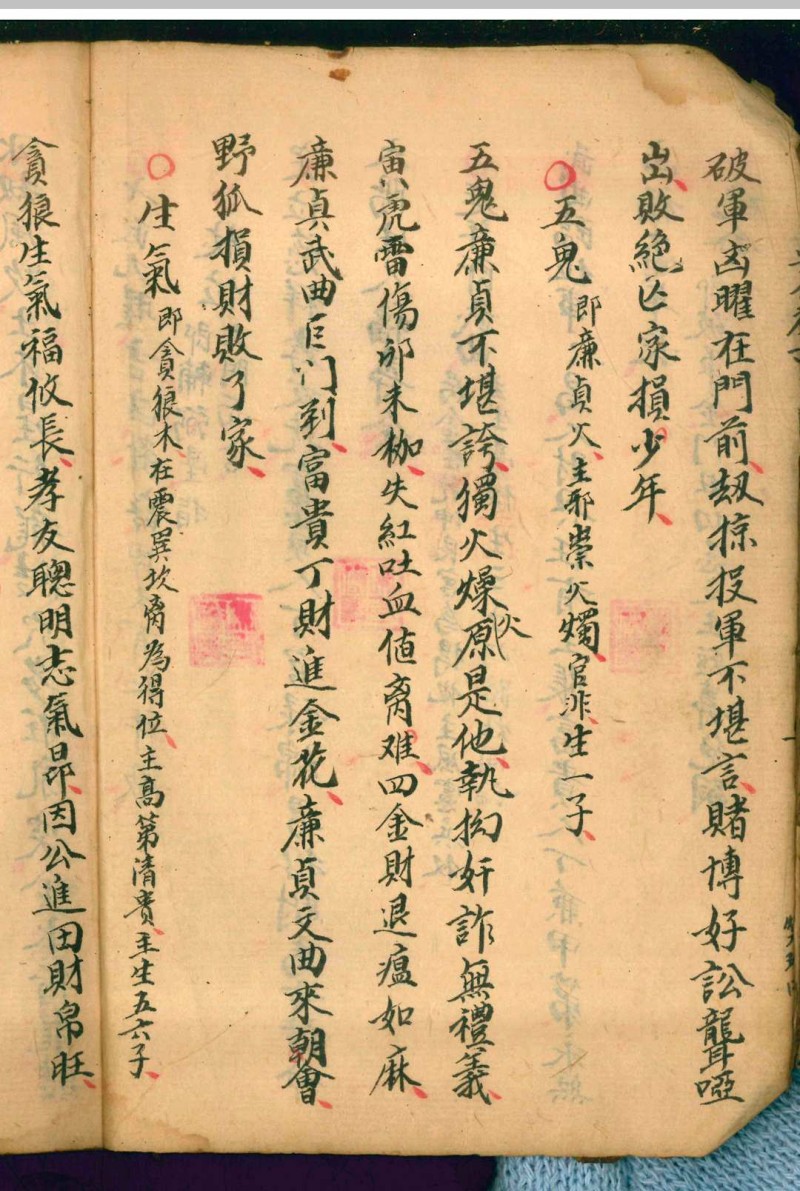 破軍凶曜在門前刼掠投軍不堪言賭博好訟聾啞
出敗絕亡家損少年
五鬼即廉貞火主邪祟火燭官非生一子
五鬼廉貞不堪誇獨火燥火原是他執拗奸詐無禮義
寅虎雷傷卯未枷失紅吐血値离难四金財退瘟如麻
廉貞武曲巨门到富貴丁財進金花廉貞文曲來朝會
野狐損財敗了家
生氣即貪狼木在震巽坎离為得位主髙第清貴主生五六子
貪狼生氣福攸長孝友聰明志氣昂因公進田財帛旺